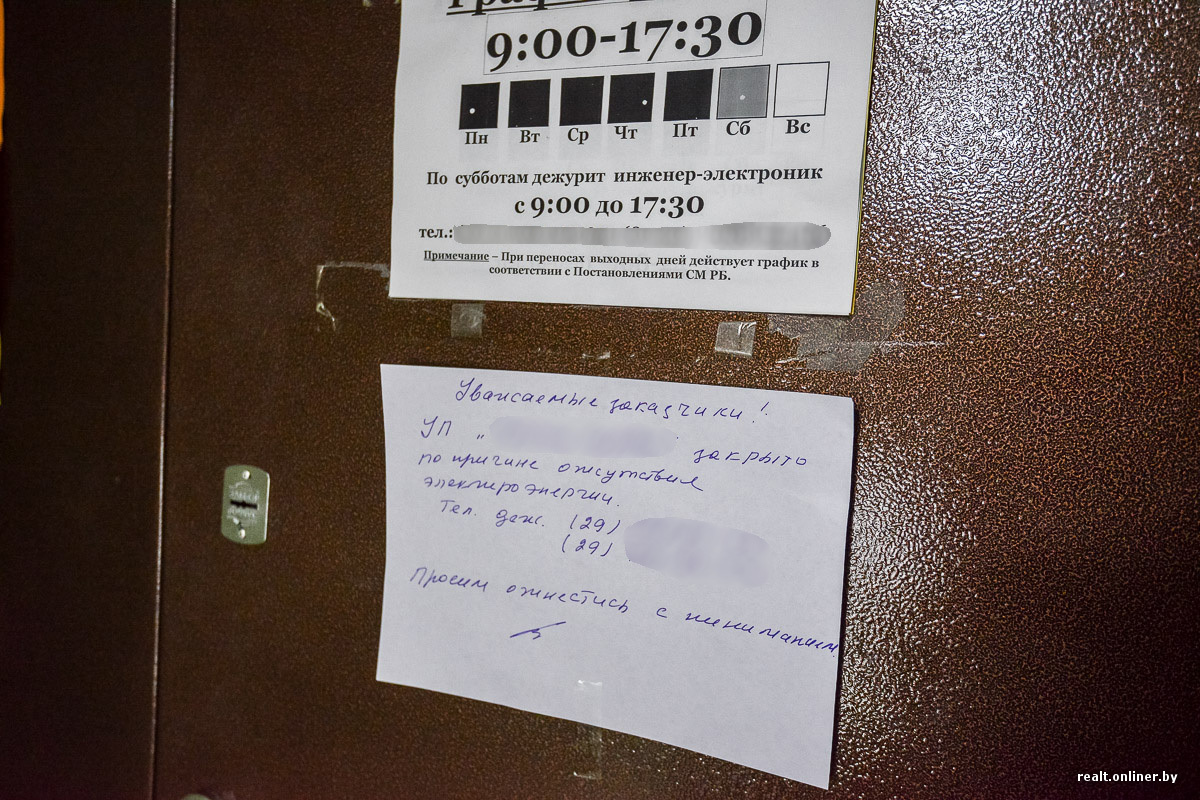 9:00-17:30
Пн Вт Ср Чт Пт Сб Вс
По субботам дежурит инженер-электроник
с 9:00 до 17:30
тел.:
Примечание – При переносах выходных дней действует график в
соответствии с Постановлениями СМ РБ.
Уважаемые заказчики!
УП " закрыто
по причине отсутствия
электроэнергии.
Тел. деж. (29)
(29)
Просим отнестись с пониманием.
realt.onliner.by